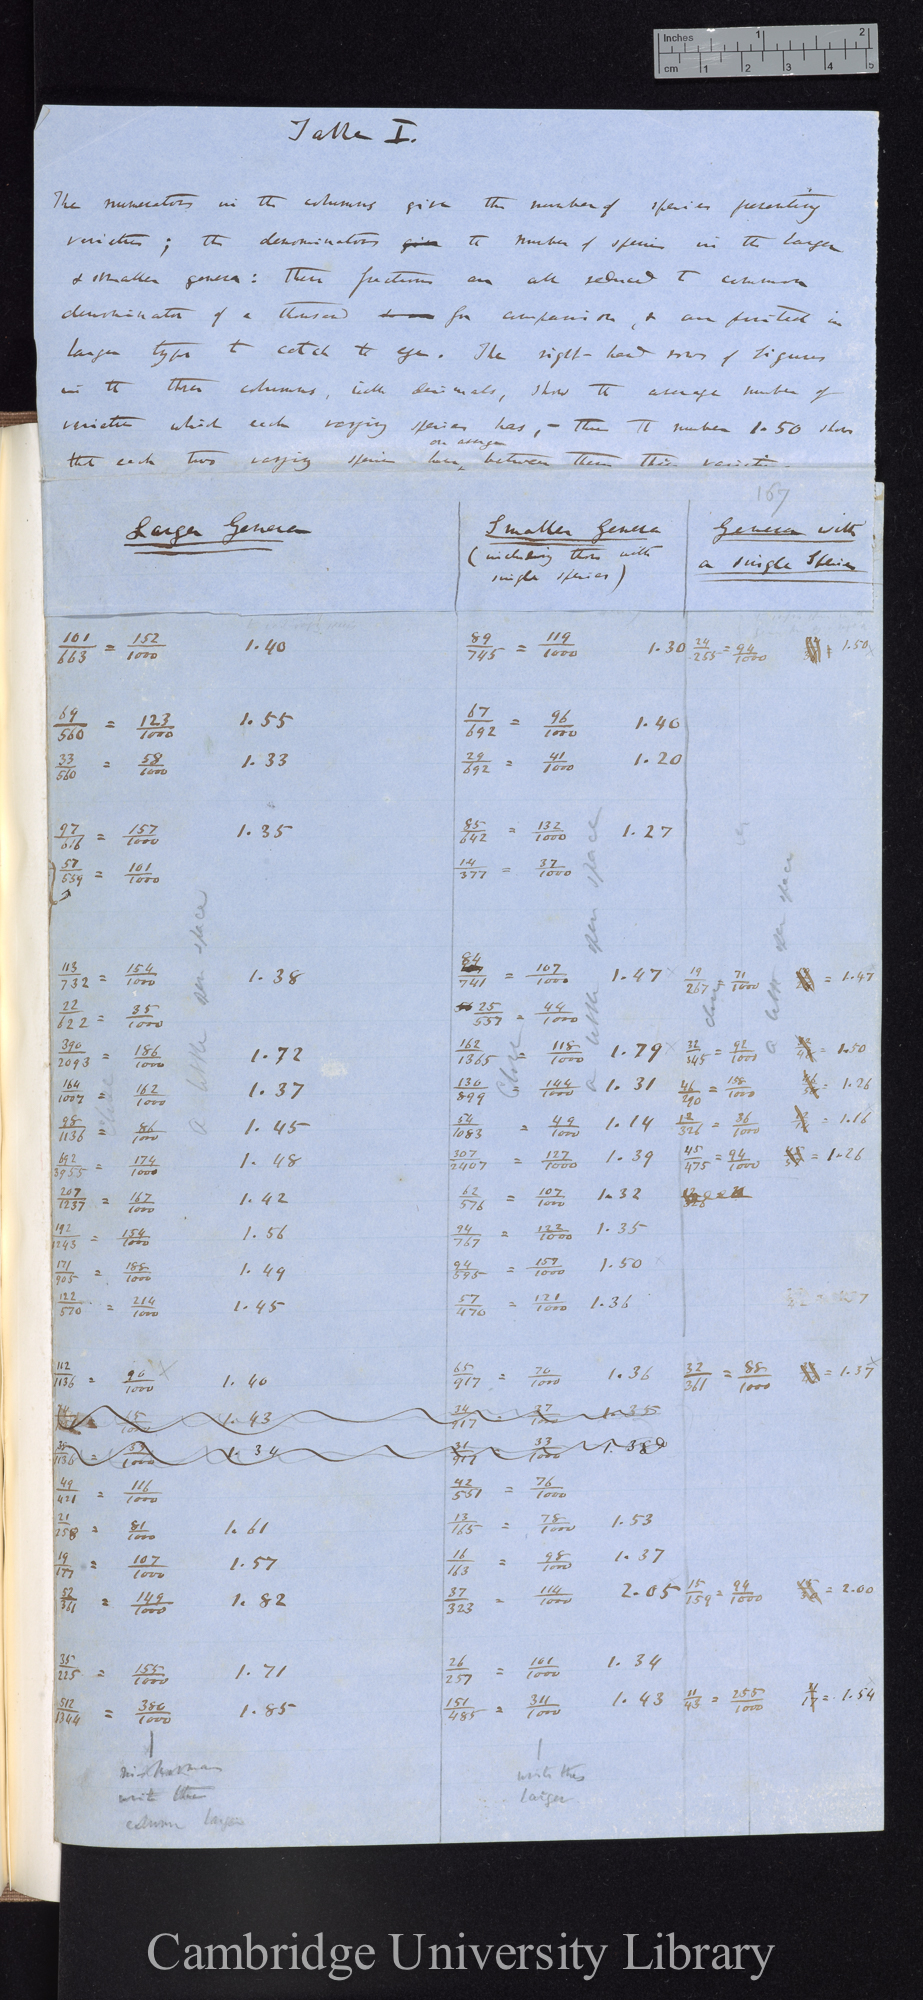 Inches 1 2
cm 1 2 3 4 5
Table I.
The numerators in the columns give the number of species presenting
varieties; the denominators give the number of species in the larger
& smaller genera: these fractions are all reduced to common
denominator of a thousand for comparison, & are printed in
larger type to catch the eye. The right-hand rows of figures
in the three columns, with decimals, show the average number of
varieties which each varying species has, — thus the number 1.50 shows
on average
that each two varying species have, between them three varieties.
167
Larger Genera
Smaller Genera
(including those with
single species)
Genera with
a single Species
101/663 = 152/1000 1.40 89/745 = 119/1000 1.30 24/255 = 94/1000 1.50
69/560 = 123/1000 1.55 67/692 = 96/1000 1.40
33/560 = 58/1000 1.33 29/692 = 41/1000 1.20
97/616 = 157/1000 1.35 85/642 = 132/1000 1.27
57/559 = 101/1000 14/377 = 37/1000
113/732 = 154/1000 1.38 84/741 = 107/1000 1.47 19/267 = 71/1000 = 1.47
22/622 = 35/1000 25/557 = 44/1000
390/2093 = 186/1000 1.72 162/1365 = 118/1000 1.79 32/345 = 92/1000 = 1.50
164/1007 = 162/1000 1.37 130/899 = 144/1000 1.31 46/290 = 158/1000 = 1.26
98/1136 = 86/1000 1.45 54/1083 = 49/1000 1.14 12/326 = 36/1000 = 1.16
692/3955 = 174/1000 1.48 307/2407 = 127/1000 1.39 45/475 = 94/1000 = 1.26
207/1237 = 167/1000 1.42 62/576 = 107/1000 1.32
192/1243 = 154/1000 1.56 94/767 = 122/1000 1.35
171/905 = 188/1000 1.49 94/595 = 157/1000 1.50
122/570 = 214/1000 1.45 57/470 = 121/1000 1.36
112/1136 = 90/1000 1.40 65/917 = 70/1000 1.36 32/361 = 88/1000 = 1.37
1.43 34/917 = 37/1000
35/1136 = 1.34 31/917 = 33/1000 1.38
49/421 = 116/1000 42/551 = 76/1000
21/258 = 81/1000 1.61 13/165 = 78/1000 1.53
19/177 = 107/1000 1.57 16/163 = 98/1000 1.37
52/361 = 149/1000 1.82 37/323 = 114/1000 2.05 15/159 = 94/1000 = 2.00
35/225 = 155/1000 1.71 26/257 = 101/1000 1.34
512/1344 = 380/1000 1.85 151/485 = 311/1000 1.43 11/43 = 255/1000 = 1.54
close
a little open space
close
a little open space
close
a little open space
write this
column larger
write this
larger
Cambridge University Library